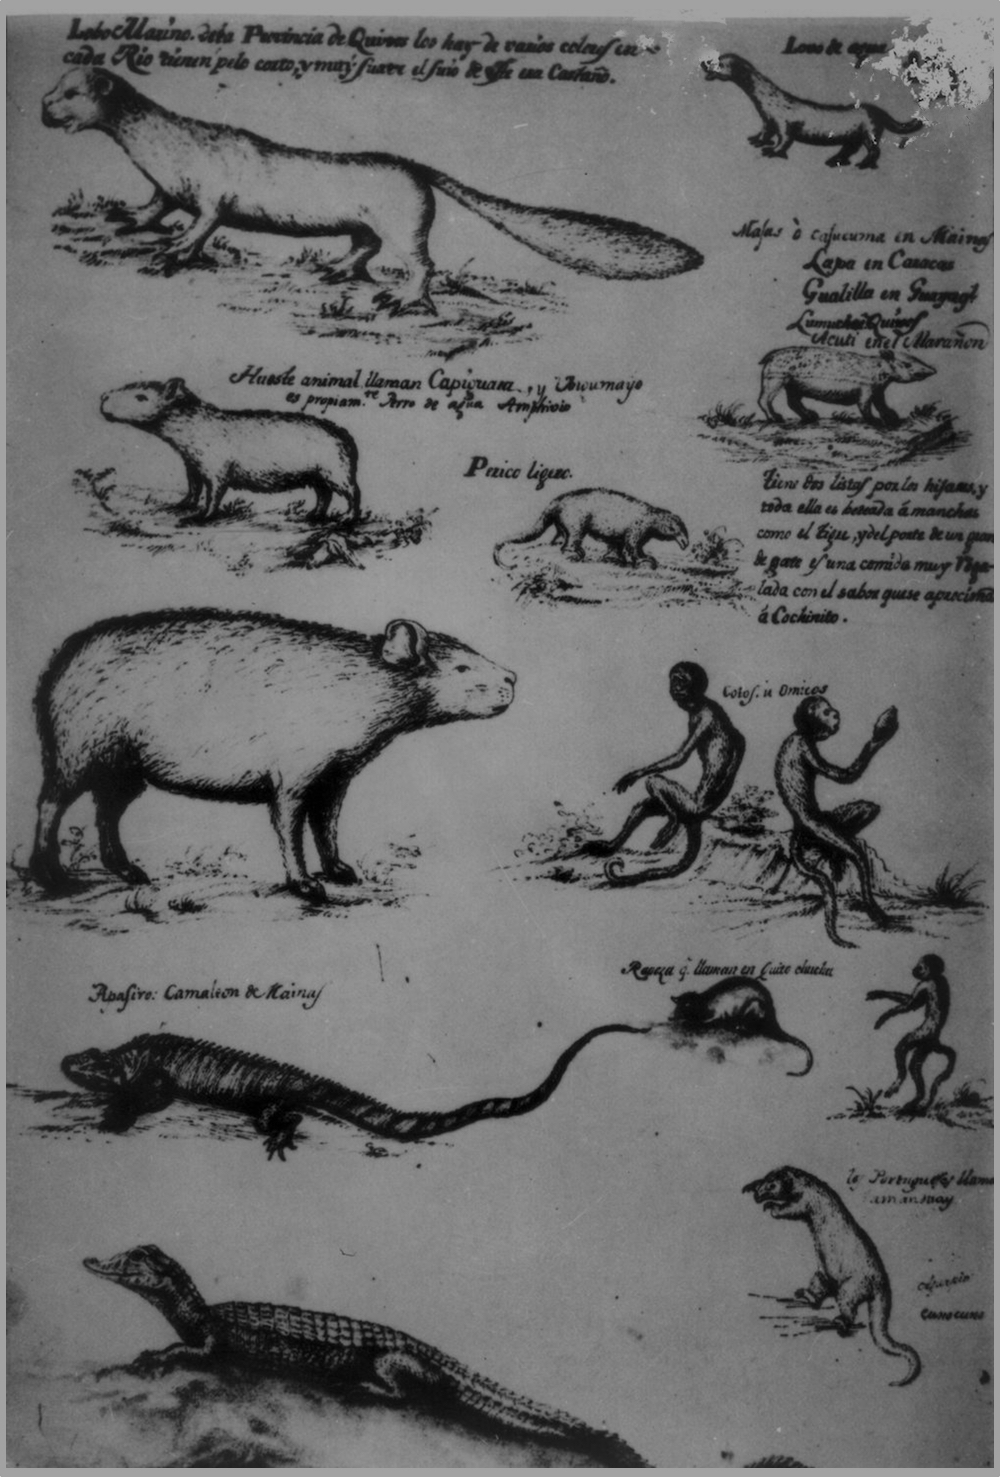 Lobo Marino. deba Provincia de Quixos los hay de varios colores en
cada Rio tienen pelo corto, y muy suave el suio de este era Castaño.
Lobo de agua
Majas ò cajucuma en Mainas
Lapa en Caracas
Gualilla en Guayaql
Lumucha Quixos
Acuti en el Marañon
Hueste animal llaman Capiguara, y
es propiam.te Perro de agua Amphivio
Perico ligero.
tiene dos listas por los hijares, y
toda ella es beteada á manchas
como el tigre, y del porte de un gran
de gato es una comida muy rega-
lada con el sabor que se aprocima
á Cochinito.
Cotos. ù Omecos
Raposa q. llaman en Quito chucha
Apasiro: Camaleon de Mainas
los Portugueses llama